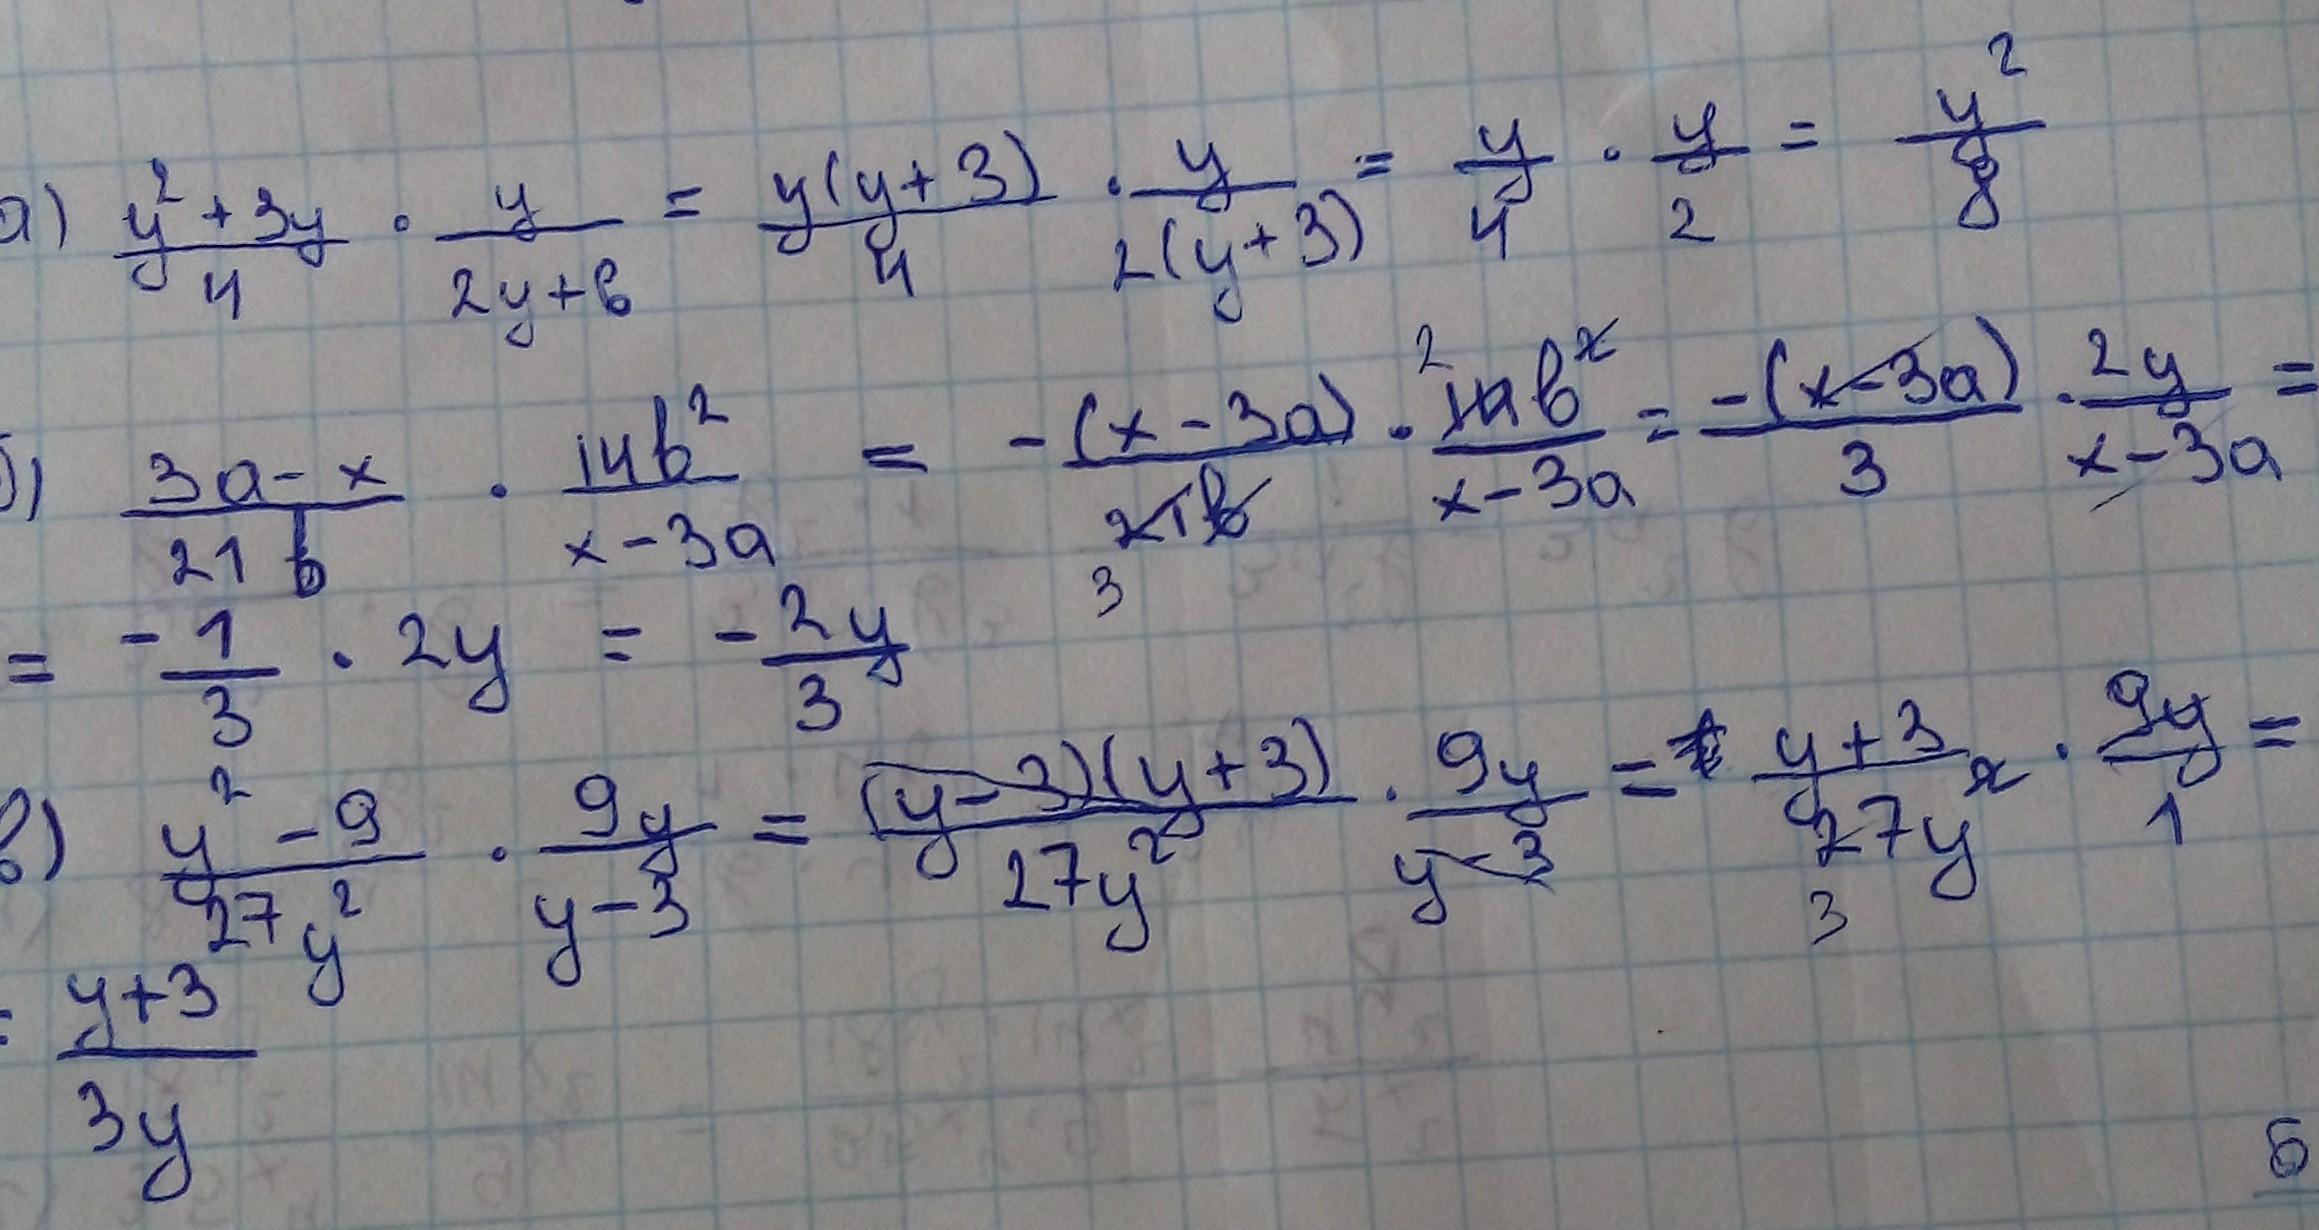 а) (y² + 3y)/4 · y/(2y+6) = y(y+3)/4 · y/(2(y+3)) = y/4 · y/2 = y²/8
б) (3a - x)/(21b) · 14b²/(x-3a) = -(x-3a)/(21b) 3 · 2 14b²/(x-3a) = -(x-3a)/3 · 2y/(x-3a) =
= -1/3 · 2y = -2y/3
в) (y² - 9)/(27y²) · 9y/(y-3) = (y-3)(y+3)/(27y²) · 9y/(y-3) = (y+3)/(27y²) 3 · 9y/1 =
= (y+3)/(3y)
6